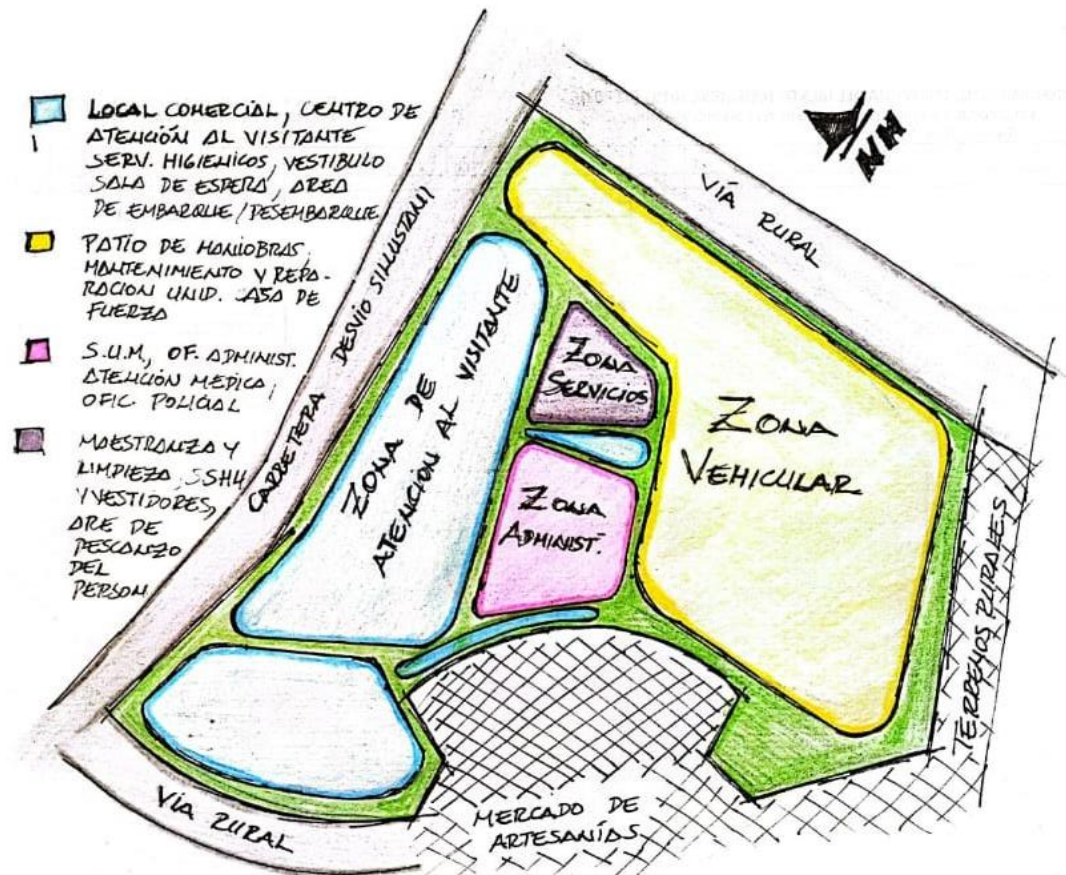 LOCAL COMERCIAL, CENTRO DE
ATENCIÓN AL VISITANTE
SERV. HIGIENICOS, VESTIBULO
SALA DE ESPERA, AREA
DE EMBARQUE/DESEMBARQUE
PATIO DE MANIOBRAS,
MANTENIMIENTO Y REPA-
RACION UNID. ASA DE
FUERZA
S.U.M, OF. ADMINIST.
ATENCIÓN MEDICA,
OFIC. POLICIAL
MAESTRANZA Y
LIMPIEZA, SSHH
Y VESTIDORES,
ARE DE
DESCANZO
DEL
PERSON
CARRETERA DESVIO SILLUSTANI
VÍA RURAL
NM
ZONA DE
ATENCION AL VISITANTE
ZONA
SERVICIOS
ZONA
ADMINIST.
ZONA
VEHICULAR
TERRENOS RURALES
VÍA RURAL
MERCADO DE
ARTESANÍAS